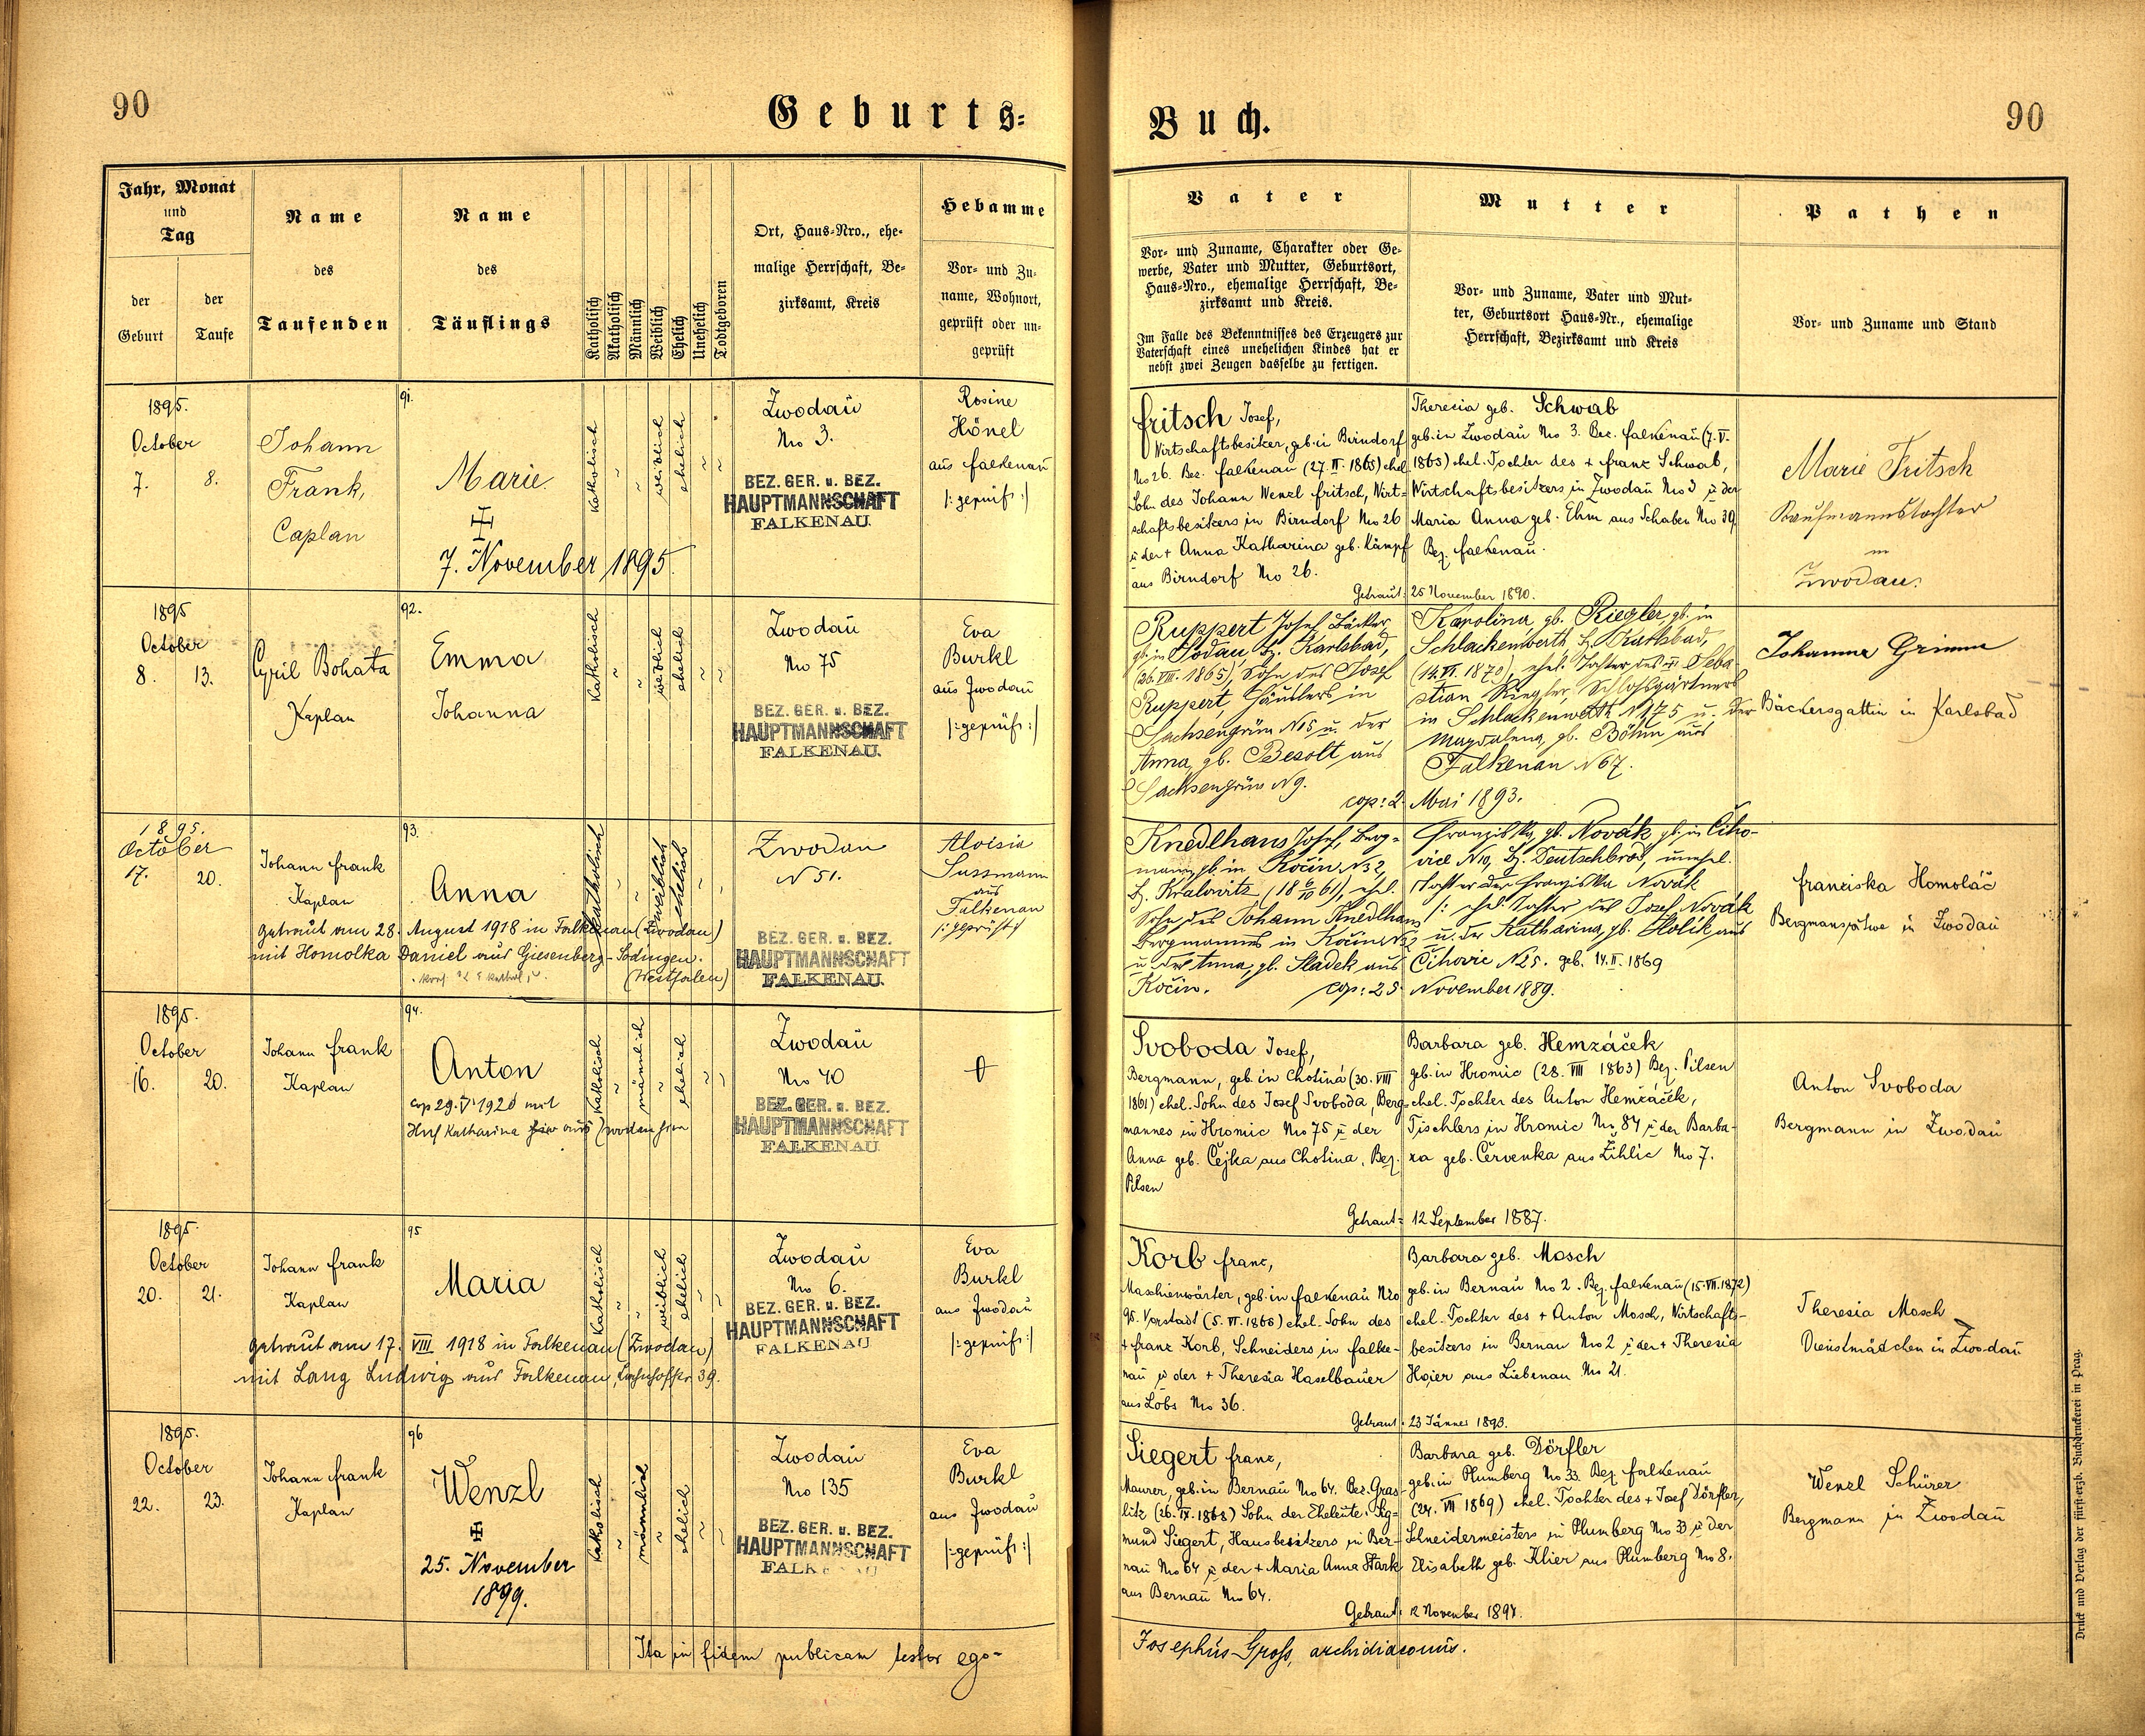 90
Geburts=
Jahr, Monat
und
Tag
der
Geburt
der
Taufe
Name
des
Taufenden
Name
des
Täuflings
Katholisch
Akatholisch
Männlich
Weiblich
Ehelich
Unehelich
Todtgeboren
Ort, Haus=Nro., ehe=
malige Herrschaft, Be=
zirksamt, Kreis
Hebamme
Vor= und Zu=
name, Wohnort,
geprüft oder un=
geprüft
1895.
October
7. 8.
Johann
Frank,
Caplan
91.
Marie
7. November 1895.
katholisch
weiblich
ehelich
Zwodau
No 3.
BEZ. GER. u. BEZ.
HAUPTMANNSCHAFT
FALKENAU.
Rosine
Hönel
aus Falkenau
|:geprüft:|
1895
October
8. 13.
Cyril Bohata
Kaplan
92.
Emma
Johanna
Katholisch
weiblich
ehelich
Zwodau
No 75
BEZ. GER. u. BEZ.
HAUPTMANNSCHAFT
FALKENAU.
Eva
Burkl
aus Zwodau
|:geprüft:|
1895.
October
17. 20.
Johann Frank
Kaplan
93.
Anna
getraut am 28. August 1918 in Falkenau (Zwodau)
mit Homolka Daniel aus Giesenberg-Sodingen.
(Westfalen)
katholisch
weiblich
ehelich
Zwodau
N 51.
BEZ. GER. u. BEZ.
HAUPTMANNSCHAFT
FALKENAU.
Aloisia
Sussmann
aus
Falkenau
|:geprüft:|
1895.
October
16. 20.
Johann Frank
Kaplan
94.
Anton
cop 29. V 1920 mit
Katharina
Katholisch
männlich
ehelich
Zwodau
No 40
BEZ. GER. u. BEZ.
HAUPTMANNSCHAFT
FALKENAU.
1895.
October
20. 21.
Johann Frank
Kaplan
95
Maria
getraut am 17. VIII 1918 in Falkenau (Zwodau)
mit Lang Ludwig aus Falkenau, Bahnhofstr. 39.
Katholisch
weiblich
ehelich
Zwodau
No 6.
BEZ. GER. u. BEZ.
HAUPTMANNSCHAFT
FALKENAU
Eva
Burkl
aus Zwodau
|:geprüft:|
1895.
October
22. 23.
Johann Frank
Kaplan
96
Wenzl
25. November
1899.
Katholisch
männlich
ehelich
Zwodau
No 135
BEZ. GER. u. BEZ.
HAUPTMANNSCHAFT
FALK
Eva
Burkl
aus Zwodau
|:geprüft:|
Ita in fidem publicam testor ego=
Buch.
90
Vater
Vor= und Zuname, Charakter oder Ge=
werbe, Vater und Mutter, Geburtsort,
Haus=Nro., ehemalige Herrschaft, Be=
zirksamt und Kreis.
Im Falle des Bekenntnisses des Erzeugers zur
Vaterschaft eines unehelichen Kindes hat er
nebst zwei Zeugen dasselbe zu fertigen.
Mutter
Vor= und Zuname, Vater und Mut=
ter, Geburtsort Haus=Nr., ehemalige
Herrschaft, Bezirksamt und Kreis
Pathen
Vor= und Zuname und Stand
Fritsch Josef,
Wirtschaftsbesitzer, geb. in Birndorf
No 26. Bez. Falkenau (27. II. 1865) ehel.
Sohn des Johann Wenzl Fritsch, Wirt=
schaftsbesitzers in Birndorf No 26
u der + Anna Katharina geb. Kämpf
aus Birndorf No 26.
Theresia geb. Schwab
geb. in Zwodau No 3. Bez. Falkenau (7. V.
1865) ehel. Tochter des + Franz Schwab,
Wirtschaftsbesitzers in Zwodau No 3 u der
Maria Anna geb. Ehm aus Schaben No 39
Bez. Falkenau.
Getraut: 25 November 1890.
Marie Fritsch
Kaufmannstochter
in
Zwodau.
Ruppert Josef Bäcker,
gb. in Sodau Bz. Karlsbad,
(26. VIII. 1865), Sohn des Josef
Ruppert, Häuslers in
Sachsengrün N 5 u. der
Anna, gb. Besolt aus
Sachsengrün N 9.
Karolina, gb. Riegler, gb. in
Schlackenwerth Bz. Karlsbad,
(14. VI. 1870), ehel. Tochter des Seba-
stian Riegler, Schlossgärtners
in Schlackenwerth N 175 u. der
Magdalena, gb. Böhm aus
Falkenau N 67.
cop: 2. Mai 1893.
Johanna Grimm
Bäckersgattin in Karlsbad
Knedlhans Josef, Berg=
mann, gb. in Kočin N 32,
Bz. Kralovitz (18 6/10 61), ehel.
Sohn des Johann Knedlhans
Bergmanns in Kočin N 32
u der Anna, gb. Sladek aus
Kočin.
Franziska, gb. Novák, gb. in Čiho-
vice N 10, Bz. Deutschbrod, unehel.
Tochter der Franziska Novák
|: ehel. Tochter des Josef Novák
u. der Katharina, gb. Holik aus
Čihovic N 25. geb. 14. II. 1869
cop: 25 November 1889.
Franciska Homoláč
Bergmansgattin in Zwodau
Svoboda Josef,
Bergmann, geb. in Chotiná (30. VIII
1861) ehel. Sohn des Josef Svoboda, Berg=
mannes in Hromic No 75 u der
Anna geb. Čejka aus Chotina, Bez.
Pilsen
Barbara geb. Hemzáček
geb. in Hromic (28. VIII 1863) Bez. Pilsen
ehel. Tochter des Anton Hemzáček,
Tischlers in Hromic No 84 u der Barba-
ra geb. Červenka aus Žihlic No 7.
Getraut: 12 September 1887.
Anton Svoboda
Bergmann in Zwodau
Korb Franz,
Maschienwärter, geb. in Falkenau Nro
98. Vorstadt (5. VI. 1866) ehel. Sohn des
+ Franz Korb, Schneiders in Falke-
nau u der + Theresia Haselbauer
aus Löbs No 36.
Barbara geb. Mosch
geb. in Bernau No 2. Bez. Falkenau (15. VII. 1872)
ehel. Tochter des + Anton Mosch, Wirtschafts-
besitzers in Bernau No 2 u der + Theresia
Hoier aus Liebenau No 21.
Getraut: 23 Jänner 1893.
Theresia Mosch
Dienstmädchen in Zwodau
Siegert Franz,
Maurer, geb. in Bernau No 64. Bez. Gras-
litz (26. IX. 1868) Sohn der Eheleute Sig=
mund Siegert, Hausbesitzers in Ber-
nau No 64 u der + Maria Anna Stark
aus Bernau No 64.
Barbara geb. Dörfler
geb. in Plumberg No 33. Bez. Falkenau
(24. VII 1869) ehel. Tochter des + Josef Dörfler,
Schneidermeisters in Plumberg No 33 u der
Elisabeth geb. Klier aus Plumberg No 8.
Getraut: 12 November 1894.
Wenzl Schürer
Bergmann in Zwodau
Josephus Gross, archidiaconus.
Druck und Verlag der fürst-erzb. Buchdruckerei in Prag.